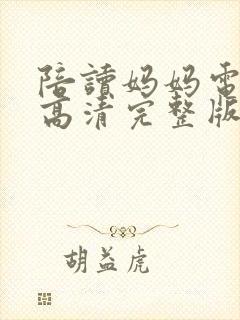 陪讀妈妈電
高清完整版
胡益虎